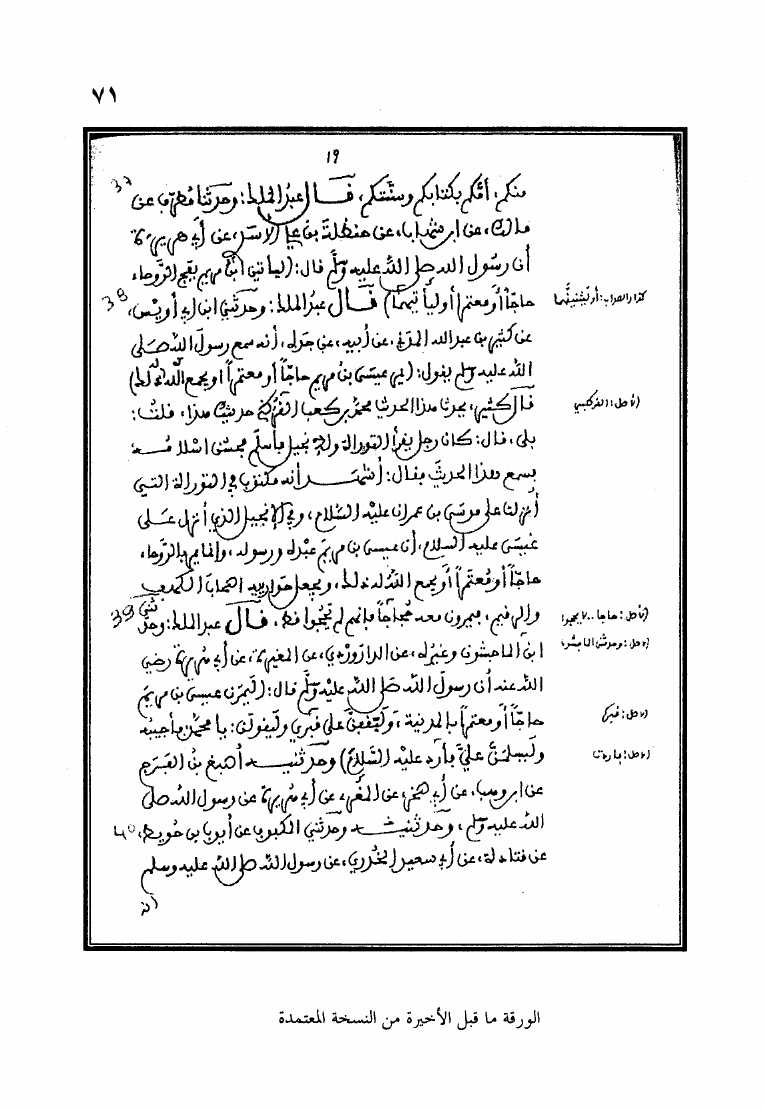 ٧١
١٩
منكم، أمّكم بكتابكم وسنتكم، قال عبد الملك: وحدثنا مطرف عن
مالك، عن ابن شهاب، عن حنظلة بن علي الأسلمي، عن أبي هريرة
أن رسول الله صلى الله عليه وسلم قال: (ليأتين ابن مريم بفج الروحاء،
حاجّاً أو معتمراً أو ليأتينهما) قال عبد الملك: وحدثني ابن أبي أويس، 38
كذا والصواب: أو ليثنينهما
عن كثير بن عبد الله المزني، عن أبيه، عن جده، أنه سمع رسول الله صلى
الله عليه وسلم يقول: (يمر عيسى بن مريم حاجّاً أو معتمراً أو يجمع الله له ذلك)
قال كثير، فحدثنا هذا الحديث محمد بن كعب القرظي حديثك هذا، قلت:
بلى، قال: كان رجل يقرأ التوراة والإنجيل فأسلم فحسن إسلامه
يسمع هذا الحديث فقال: أشهد أنه مكتوب في التوراة التي
أنزلت على موسى بن عمران عليه السلام، وفي الإنجيل الذي أنزل على
عيسى عليه السلام، أن عيسى بن مريم عبد الله ورسوله، وأنه يمر بالروحاء،
حاجّاً أو معتمراً أو يجمع الله له ذلك، ويجعل حوارييه أصحاب الكهف
والرقيم، يمرون معه حجاجاً فإنهم لم يحجوا قط، قال عبد الملك: وحدثني 39
ابن الماجشون وغيره، عن الدراوردي، عن المغيرة، عن أبي هريرة رضي
الله عنه أن رسول الله صلى الله عليه وسلم قال: (ليمرن عيسى بن مريم
حاجّاً أو معتمراً بالمدينة، وليقفن على قبري وليقولن: يا محمد فأجيبه
وليسلمن علي فأرد عليه السلام) وحدثنيه أصبغ بن الفرج
عن ابن وهب، عن أبي صخر، عن المقبري عن أبي هريرة عن رسول الله صلى
الله عليه وسلم، وحدثني عن أيوب بن خويط، 40
عن قتادة، عن أبي سعيد الخدري، عن رسول الله صلى الله عليه وسلم
أنه
الورقة ما قبل الأخيرة من النسخة المعتمدة